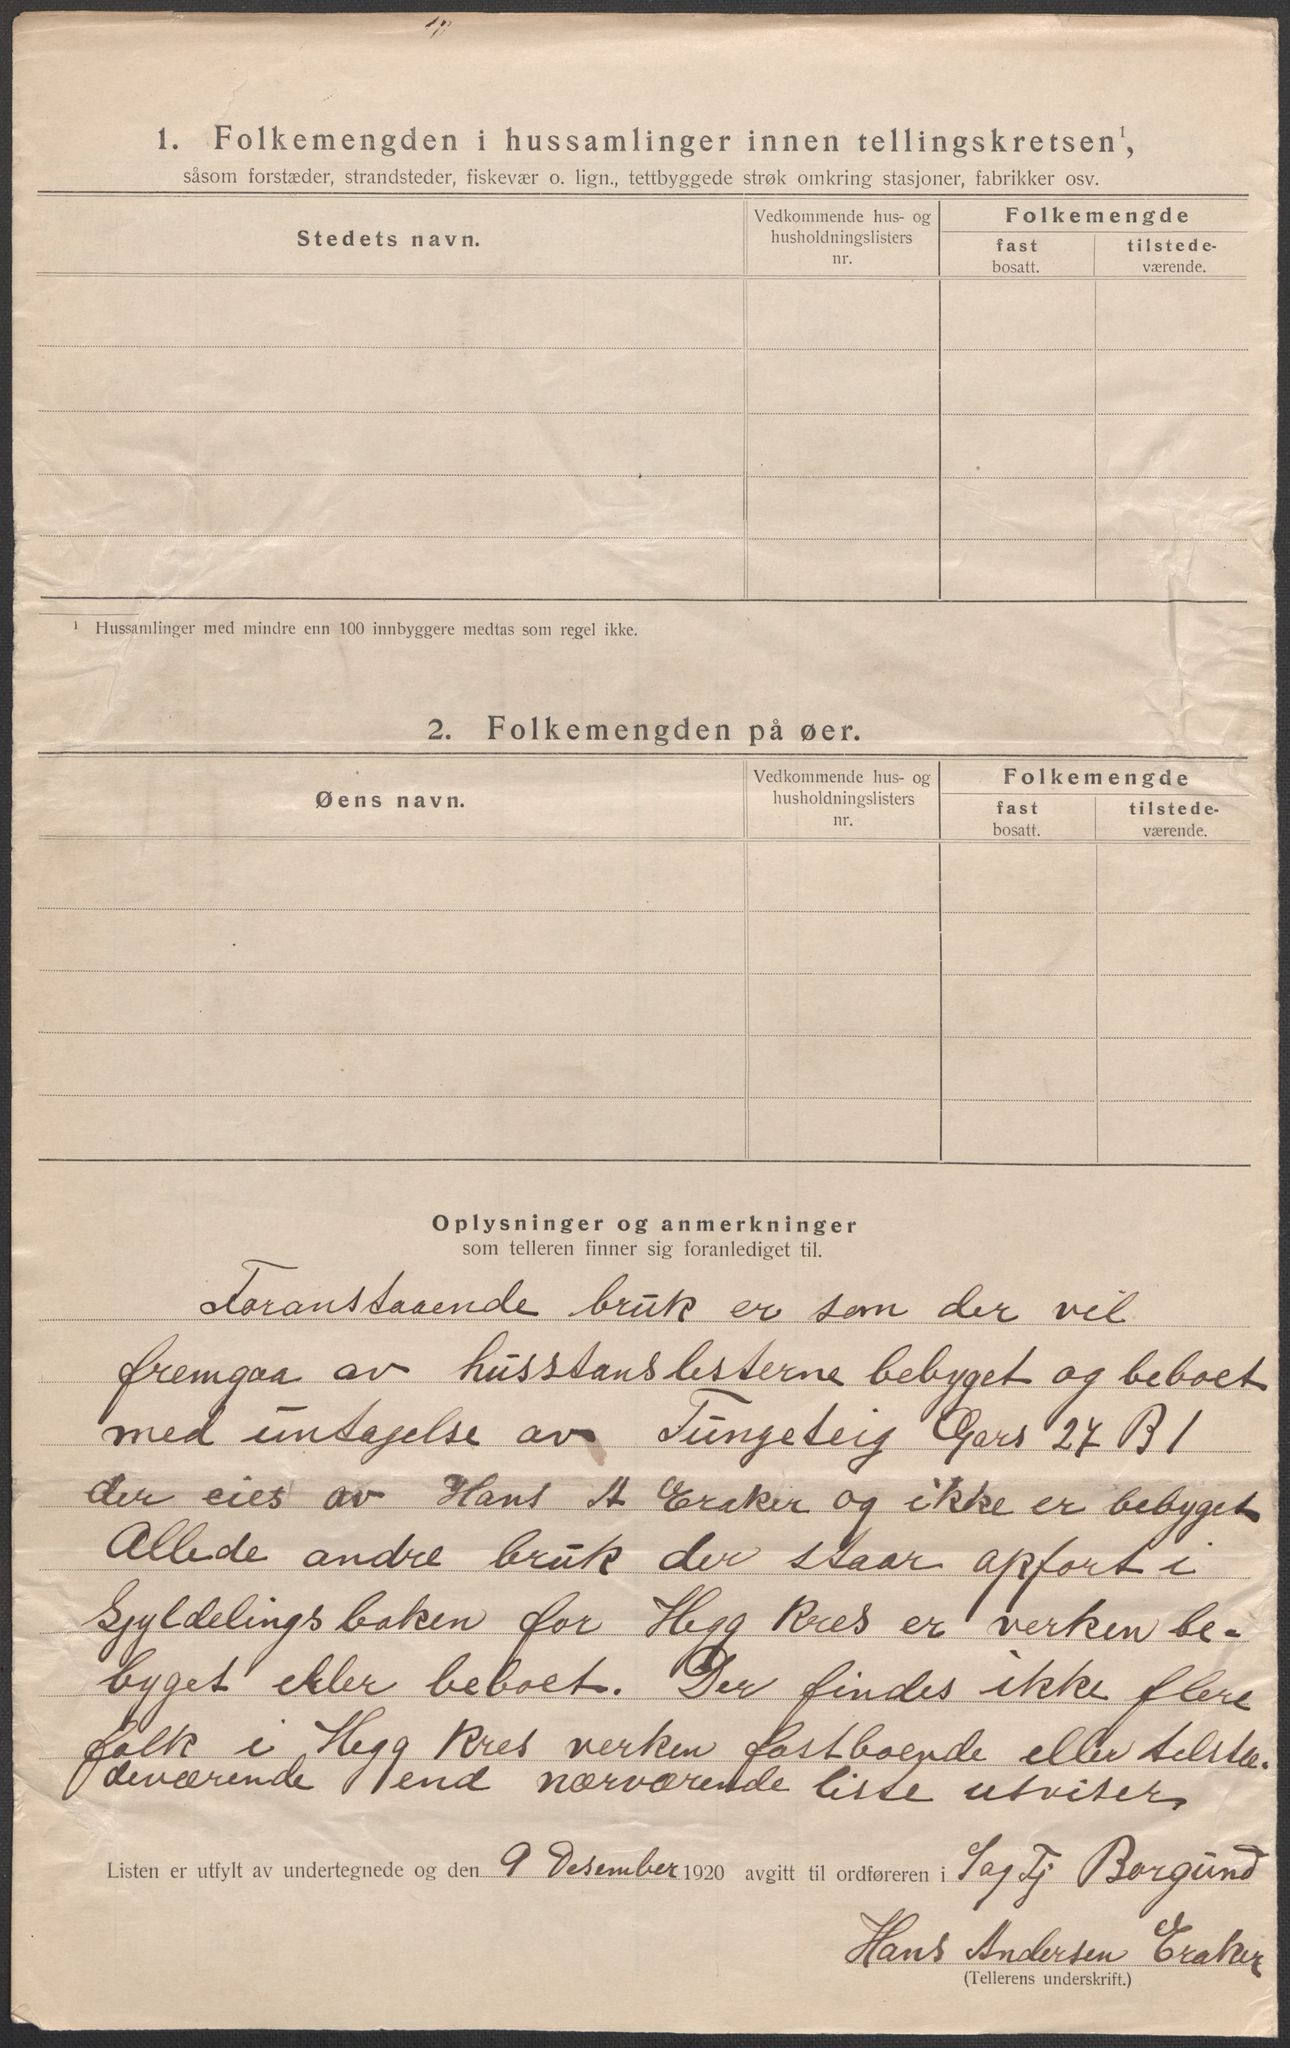 1. Folkemengden i hussamlinger innen tellingskretsen¹,
såsom forstæder, strandsteder, fiskevær o. lign., tettbyggede strøk omkring stasjoner, fabrikker osv.
Stedets navn.
Vedkommende hus- og
husholdningslisters
nr.
Folkemengde
fast
bosatt.
tilstede-
værende.
¹ Hussamlinger med mindre enn 100 innbyggere medtas som regel ikke.
2. Folkemengden på øer.
Øens navn.
Vedkommende hus- og
husholdningslisters
nr.
Folkemengde
fast
bosatt.
tilstede-
værende.
Oplysninger og anmerkninger
som telleren finner sig foranlediget til.
Foranstaaende bruk er som der vil
fremgaa av husstanslisterne bebyget og beboet
med untagelse av Tungeteig Gars 27 B 1
der eies av Hans A Eraker og ikke er bebyget
Allede andre bruk der staar opført i
Sjyldelingsboken for Hegg Kres er verken be-
byget eller beboet. Der findes ikke flere
folk i Hegg Kres verken fastboende eller tilstæ-
deværende end nærværende liste utviser
Listen er utfylt av undertegnede og den 9 Desember 1920 avgitt til ordføreren i Borgund
Hans Andersen Eraker
(Tellerens underskrift.)